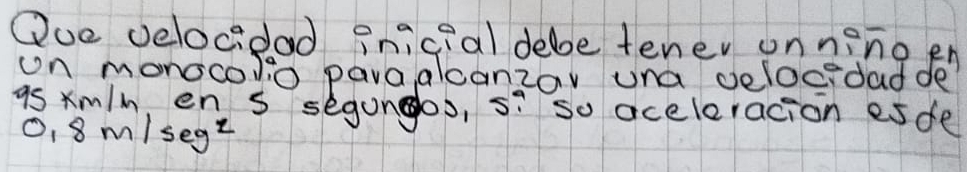 Que velocidad inicial debe tener un niño en
un monocolio para alcanzar una velocidad de
95 km/h en 5 segundos, si su aceleración es de
0,8 m/seg²